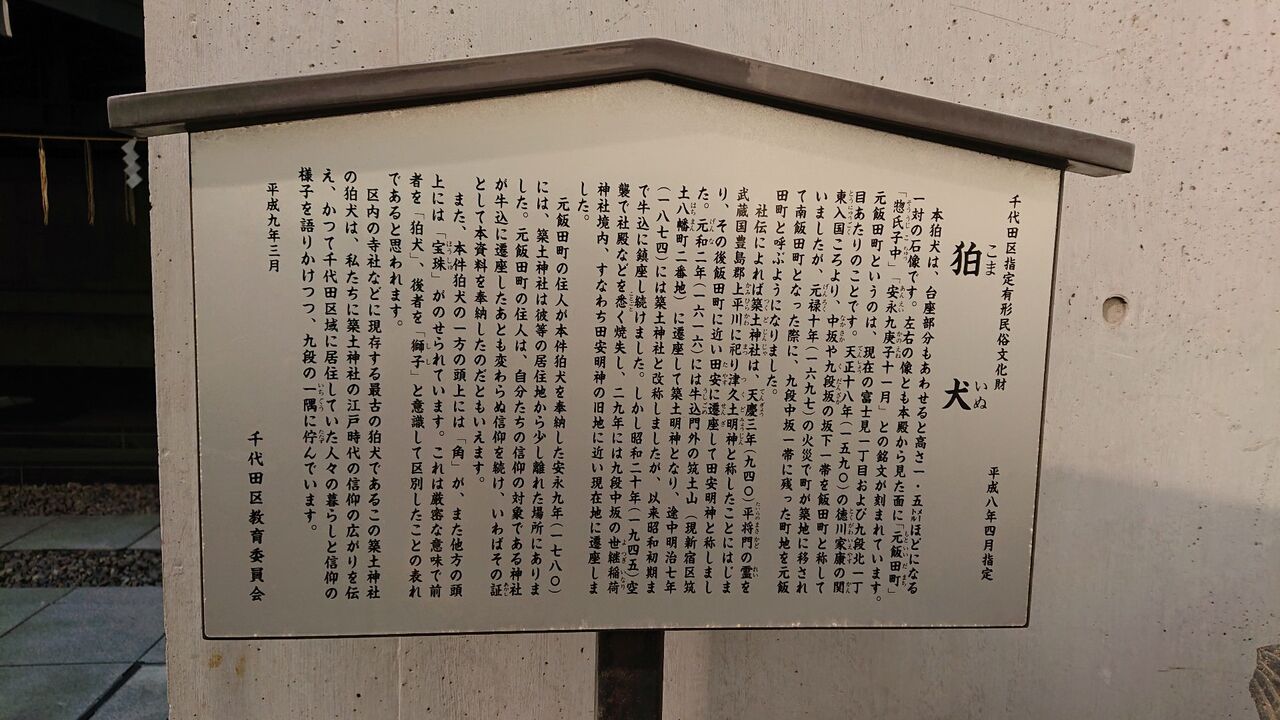 千代田区指定有形民俗文化財
狛犬
こま いぬ
平成八年四月指定
本狛犬は、台座部分もあわせると高さ一・五㍍ほどになる
一対の石像です。左右の像とも本殿から見た面に「元飯田町」
「惣氏子中」「安永九庚子十一月」との銘文が刻まれています。
元飯田町というのは、現在の富士見一丁目および九段北一丁
目あたりのことです。天正十八年(一五九〇)の徳川家康の関
東入国ころより、中坂や九段坂の坂下一帯を飯田町と称して
いましたが、元禄十年(一六九七)の火災で町が築地に移され
て南飯田町となった際に、九段中坂一帯に残った町地を元飯
田町と呼ぶようになりました。
社伝によれば築土神社は、天慶三年(九四〇)平将門の霊を
武蔵国豊島郡上平川に祀り津久土明神と称したことにはじま
り、その後飯田町に近い田安に遷座して田安明神と称しまし
た。元和二年(一六一六)には牛込門外の筑土山(現新宿区筑
土八幡町二番地)に遷座して築土明神となり、途中明治七年
(一八七四)には築土神社と改称しましたが、以来昭和初期ま
で牛込に鎮座し続けました。しかし昭和二十年(一九四五)空
襲で社殿などを悉く焼失し、二九年には九段中坂の世継稲荷
神社境内、すなわち田安明神の旧地に近い現在地に遷座しま
した。
元飯田町の住人が本件狛犬を奉納した安永九年(一七八〇)
には、築土神社は彼等の居住地から少し離れた場所にありま
した。元飯田町の住人は、自分たちの信仰の対象である神社
が牛込に遷座したあとも変わらぬ信仰を続け、いわばその証
として本資料を奉納したのだともいえます。
また、本件狛犬の一方の頭上には「角」が、また他方の頭
上には「宝珠」がのせられています。これは厳密な意味で前
者を「狛犬」、後者を「獅子」と意識して区別したことの表れ
であると思われます。
区内の寺社などに現存する最古の狛犬であるこの築土神社
の狛犬は、私たちに築土神社の江戸時代の信仰の広がりを伝
え、かつて千代田区域に居住していた人々の暮らしと信仰の
様子を語りかけつつ、九段の一隅に佇んでいます。
平成九年三月
千代田区教育委員会